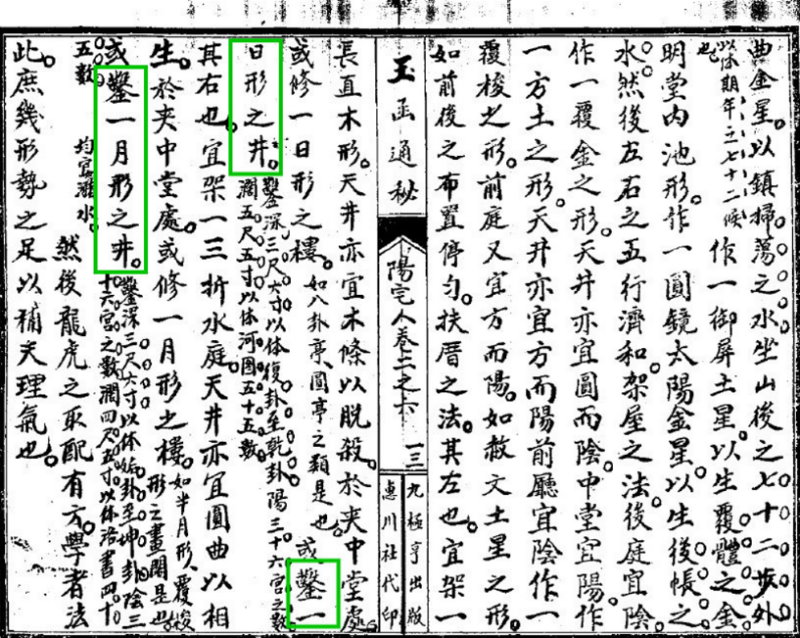 曲金星。以鎮掃蕩之水坐山後之七十二步外
以体期年之七十二候也。作一御屏土星。以生覆體之金
明堂內池形作一圓鏡太陽金星。以生後帳之
水。然後左右之五行濟和。架屋之法。後庭宜陰
作一覆金之形。天井亦宜圓而陰。中堂宜陽作
一方土之形。天井亦宜方而陽前廳宜陰作一
覆梭之形。前庭又宜方而陽。如敝文土星之形。
如前後之布置停勻。扶厝之法。其左也。宜架一
玉函通秘
陽宅人卷二之六
一三
九極亨出版
惠川社代印
長直木形。天井亦宜木條以脫殺。於夾中堂處。
或修一日形之樓。如八卦亭、圓亭之類是也。或鑿一
日形之井。鑿深三尺六寸以体復卦至乾卦陽三十六宮之數
濶五尺五寸以体河圖五十五數。
其右也。宜架一三折水庭。天井亦宜圓曲以相
生。於夾中堂處。或修一月形之樓。如半月形、覆
形之畫閣是也。
或鑿一月形之井。鑿深三尺六寸以体姤卦至坤卦陰三
十六宮之數濶四尺五寸以体洛書四十
五數 均宜灌水。然後龍虎之取配有方。學者法
此。庶幾形勢之足以補天理氣也。